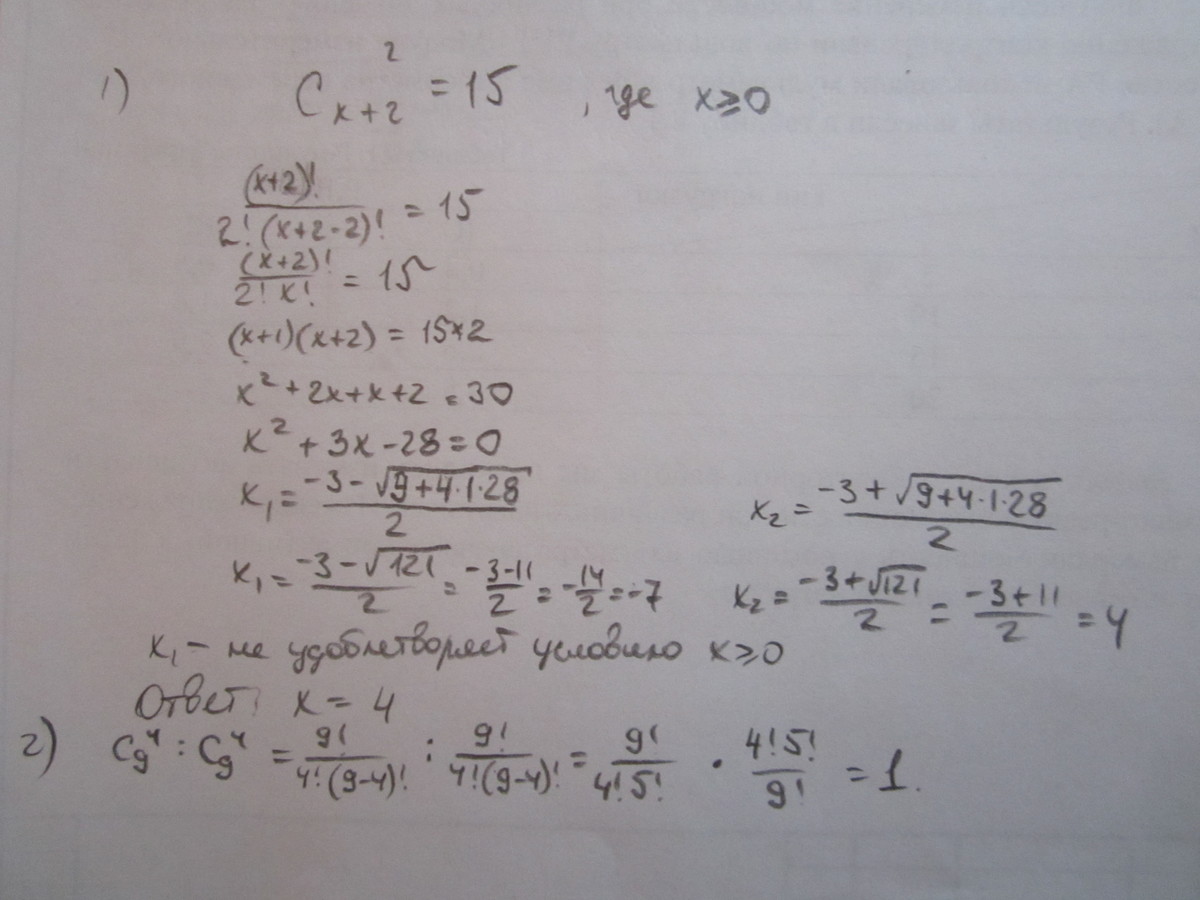 1) C²ₓ₊₂ = 15 , где x ⩾ 0
(x+2)! / 2!(x+2-2)! = 15
(x+2)! / 2! x! = 15
(x+1)(x+2) = 15×2
x² + 2x + x + 2 = 30
x² + 3x - 28 = 0
x₁ = (-3 - √(9+4·1·28)) / 2 x₂ = (-3 + √(9+4·1·28)) / 2
x₁ = (-3 - √121) / 2 = (-3-11) / 2 = -14/2 = -7 x₂ = (-3 + √121) / 2 = (-3+11) / 2 = 4
x₁ - не удовлетворяет условию x ⩾ 0
Ответ: x = 4
2) C₉⁴ : C₉⁴ = 9! / 4!(9-4)! : 9! / 4!(9-4)! = 9! / 4!5! · 4!5! / 9! = 1.